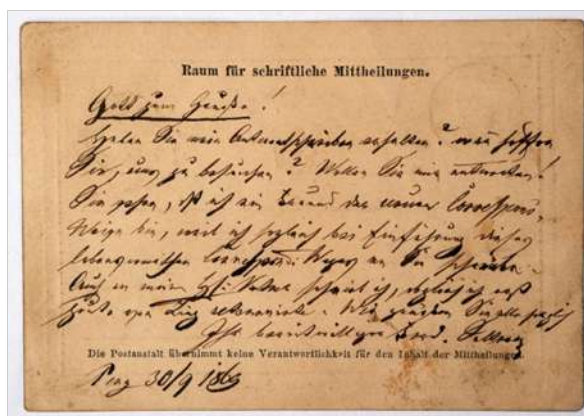 Raum für schriftliche Mittheilungen.
Gott zum Gruße!
Haben Sie mein Antwortschreiben erhalten? wann hoffen
Sie, uns zu besuchen? Wollen Sie mir antworten!
Sie sehen, daß ich ein Freund der neuen Correspond.
bin, weil ich sogleich bei Einführung dieses
Correspond. Weges an Sie schreibe.
Auch an meinen schrieb ich, obgleich ich erst
heute von Linz retournirte. Wir grüßen Sie alle herzlich
Ihr bereitwilliger Ferd.
Die Postanstalt übernimmt keine Verantwortlichkeit für den Inhalt der Mittheilungen.
30/9 1869